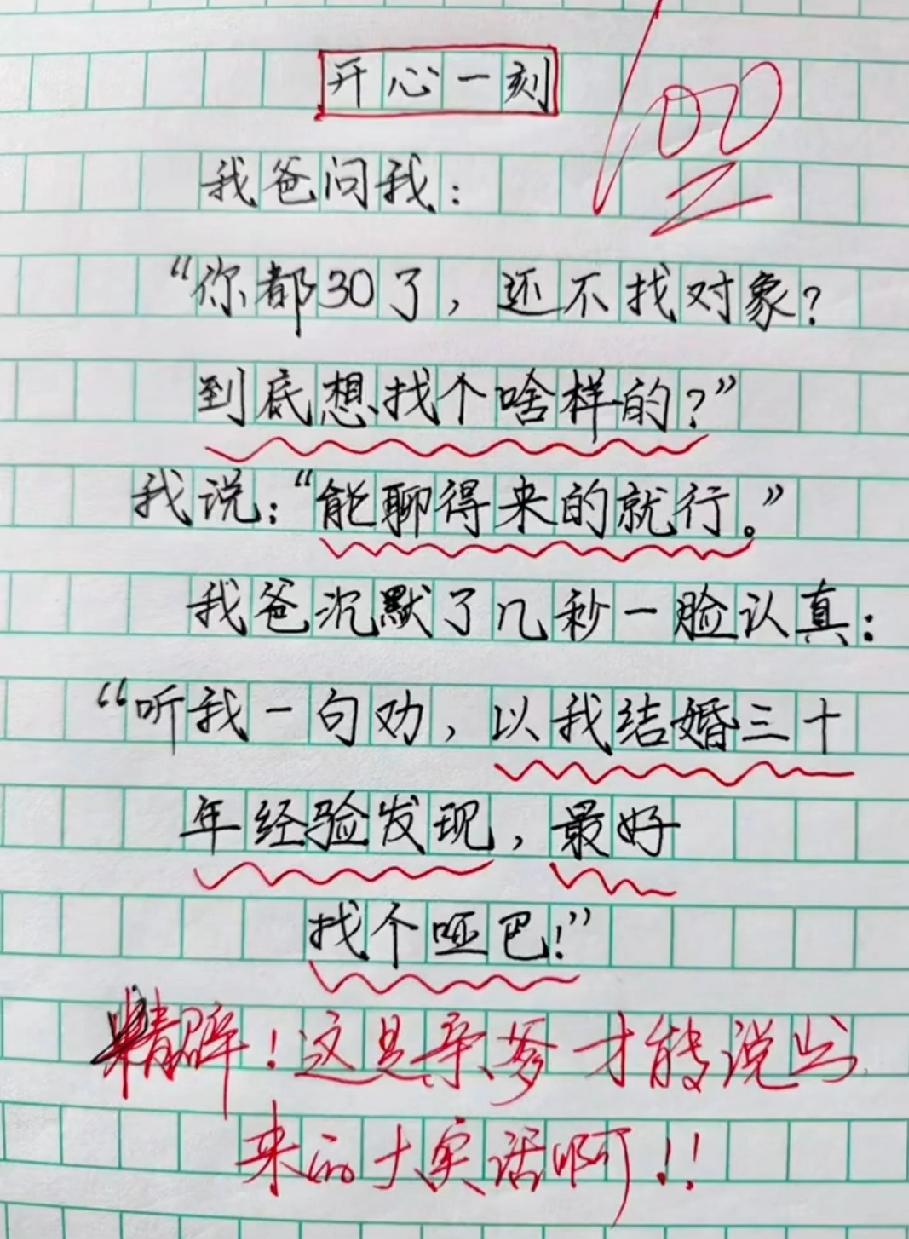 开心一刻
100
我爸问我：
“你都30了，还不找对象？
到底想找个啥样的？”
我说：“能聊得来的就行。”
我爸沉默了几秒一脸认真：
“听我一句劝，以我结婚三十
年经验发现，最好
找个哑巴！”
精辟！这是亲爹才能说出
来的大实话啊！！